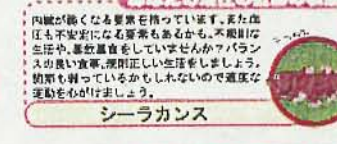 内臓が弱くなる要素を持っています。また血
圧も不安定になる要素もあるかも。不規則な
生活や、暴飲暴食をしていませんか？バラン
スの良い食事、規則正しい生活をしましょう。
筋肉も弱っているかもしれないので適度な
運動を心がけましょう。
シーラカンス